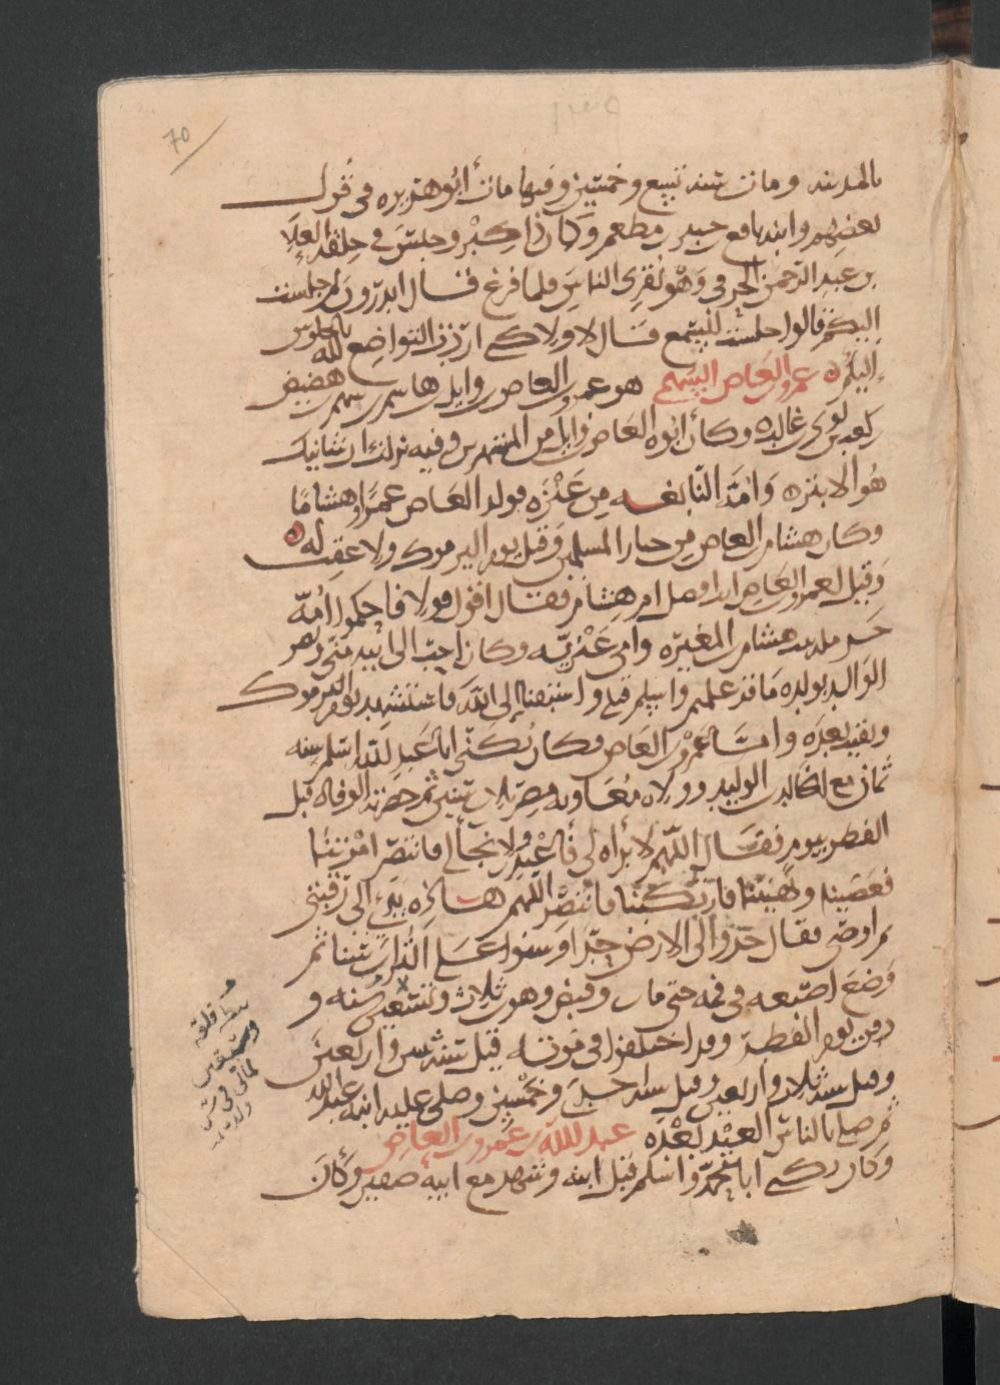 70
بالمدينه ومات سنه تسع وخمسين وفيها مات أبو هريره في قول
بعضهم وابنه نافع جبير مطعم وكان ذا كبر وجلس في حلقه العلا
بن عبد الرحمن الحرقي وهو يقرى الناس فلما فرغ قال اتدرون لم جلست
اليكم قالوا جلست لتسمع قال لا ولاكني اردت التواضع لله بالجلوس
اليكم عمرو بن العاص السهمي هو عمرو بن العاص بن وايل بن هاشم بن سهم بن هصيص
بن كعب بن لوي بن غالب وكان ابوه العاص بن وايل من المستهزين وفيه نزلت ان شانيك
هو الابتر وامه النابغه من عنزه فولد العاص عمرا وهشاما
وكان هشام بن العاص من خيار المسلمين وقتل يوم اليرموك ولا عقب له
وقيل لعمرو بن العاص انت افضل ام هشام فقال اقول قولا فاحكموا امه
هشام بن المغيره وامي عنزيه وكان احب الى ابيه مني وبصر
الوالد بولده ما قد علمتم واسلم قبلي واستبقنا إلى الله فاستشهد يوم اليرموك
وبقيت بعده وامـا عمرو بن العاص فكان يكنى ابا عبد الله اسلم سنه
ثمان مع خالد بن الوليد وولاه معاويه مصر ثلاث سنين ثم حضرته الوفاه قبل
الفطر بيوم فقال اللهم لا براه لي فاعتذر ولا نجا لي فانتصر امرتنا
فعصينا ونهيتنا فارتكبنا فانتصر اللهم هـاذه يدي الى ذقني
ثم اوصى فقال خدوا لي الارض خدا وسنوا علي التراب سنا ثم
وضع اصبعه في فمه حتى مات وقبض وهو بن ثلاث وتسعين سنه و
دفن يوم الفطر وقد اختلفوا في موته قيل سنه اثنين واربعين
وقيل سنه ثلاث واربعين وقيل سنه احدى وخمسين وصلى عليه ابنه عبد الله
ثم صلى بالناس العيد بعده عبد الله بن عمرو بن العاص
وكان يكنى ابا محمد واسلم قبل ابيه وشهد مع ابيه صفين وكان